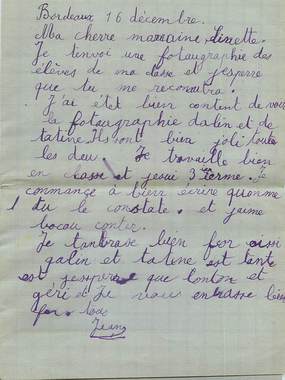 Bordeaux 16 décembre.
Ma cherre marraine Linette.
Je tenvoi une fotaugraphie des
élèves de ma classe et jesperre
que tu me reconnaitra.
J'ai étet bien content de voir
la fotaugraphie dalin et de
tatine. Ils sont bien joli toute
les deu. Je travaille bien
en classe et jesui 3ème erme. Je
commançe à bien écrire quonme
tu le constate. et jaime
bocau conter.
Je tanbrase bien for osi
galin et tatine est tante
est jesperre que tonton et
géri et Je vous enbrasse bien
for tous
Jean